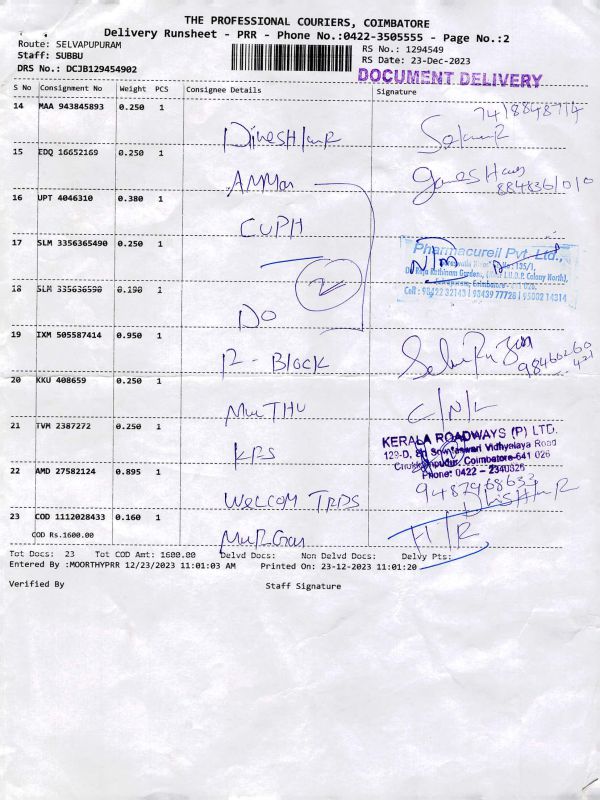 THE PROFESSIONAL COURIERS, COIMBATORE
Delivery Runsheet - PRR - Phone No.:0422-3505555 - Page No.:2
Route: SELVAPUPURAM
RS No.: 1294549
Staff: SUBBU
RS Date: 23-Dec-2023
DRS No.: DCJB129454902
DOCUMENT DELIVERY
S No Consignment No Weight PCS Consignee Details Signature
14 MAA 943845893 0.250 1
15 EDQ 16652169 0.250 1
16 UPT 4046310 0.380 1
CUPH
17 SLM 3356365490 0.250 1
Pharmacureil Pvt. Ltd.,
Cell : 98422 32143 | 98439 77728 | 95002 14314
2
18 SLM 335636590 0.190 1
DO
19 IXM 505587414 0.950 1
R - BLOCK
20 KKU 408659 0.250 1
MUTHU
C/N/L
21 TVM 2387272 0.250 1
KRS
KERALA ROADWAYS (P) LTD.
129-D, Sowdeswari Vidhyalaya Road
Coimbatore-641 026
Phone: 0422 - 2340826
22 AMD 27582124 0.895 1
WELCOM TRDS
23 COD 1112028433 0.160 1
COD Rs.1600.00
MURGan
Tot Docs: 23 Tot COD Amt: 1600.00 Delvd Docs: Non Delvd Docs: Delvy Pts:
Entered By :MOORTHYPRR 12/23/2023 11:01:03 AM Printed On: 23-12-2023 11:01:20
Verified By Staff Signature